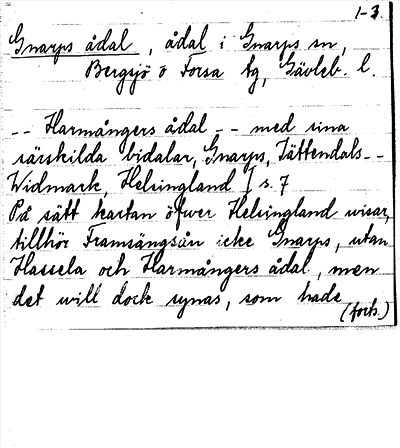 1-3.
Gnarps ådal, ådal i Gnarps sn,
Bergsjö o Forsa tg, Gävleb. l.
-- Harmångers ådal -- med sina
särskilda bidalar, Gnarps, Jättendals--
Widmark, Helsingland I s. 7
På sätt kartan öfwer Helsingland wisar,
tillhör Framsängsån icke Gnarps, utan
Hassela och Harmångers ådal, men
det will dock synas, som hade
(forts.)